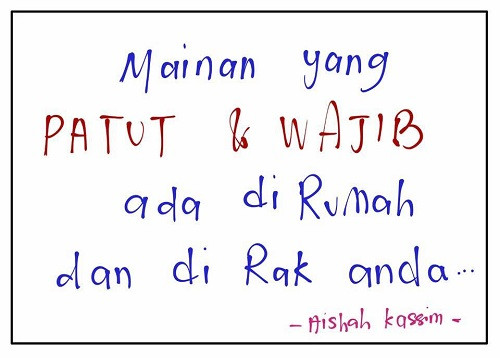 Mainan yang
PATUT & WAJIB
ada di Rumah
dan di Rak anda...
- Aishah Kassim -